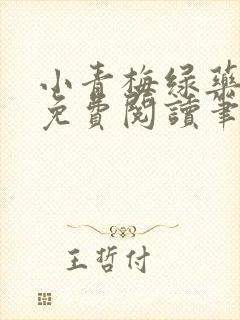 小青梅绿药
免費閱讀筆
王哲付